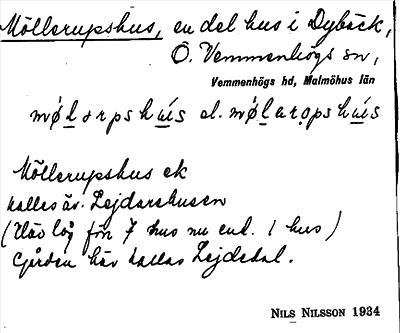 Möllerupshus, en del hus i Dybäck,
Ö. Vemmenhögs sn,
Vemmenhögs hd, Malmöhus län
el.
Möllerupshus ek
kallas äv. Lejdarehusen
(Där låg förr 7 hus nu end. 1 hus)
Gården här kallas Lejdedal.
NILS NILSSON 1934